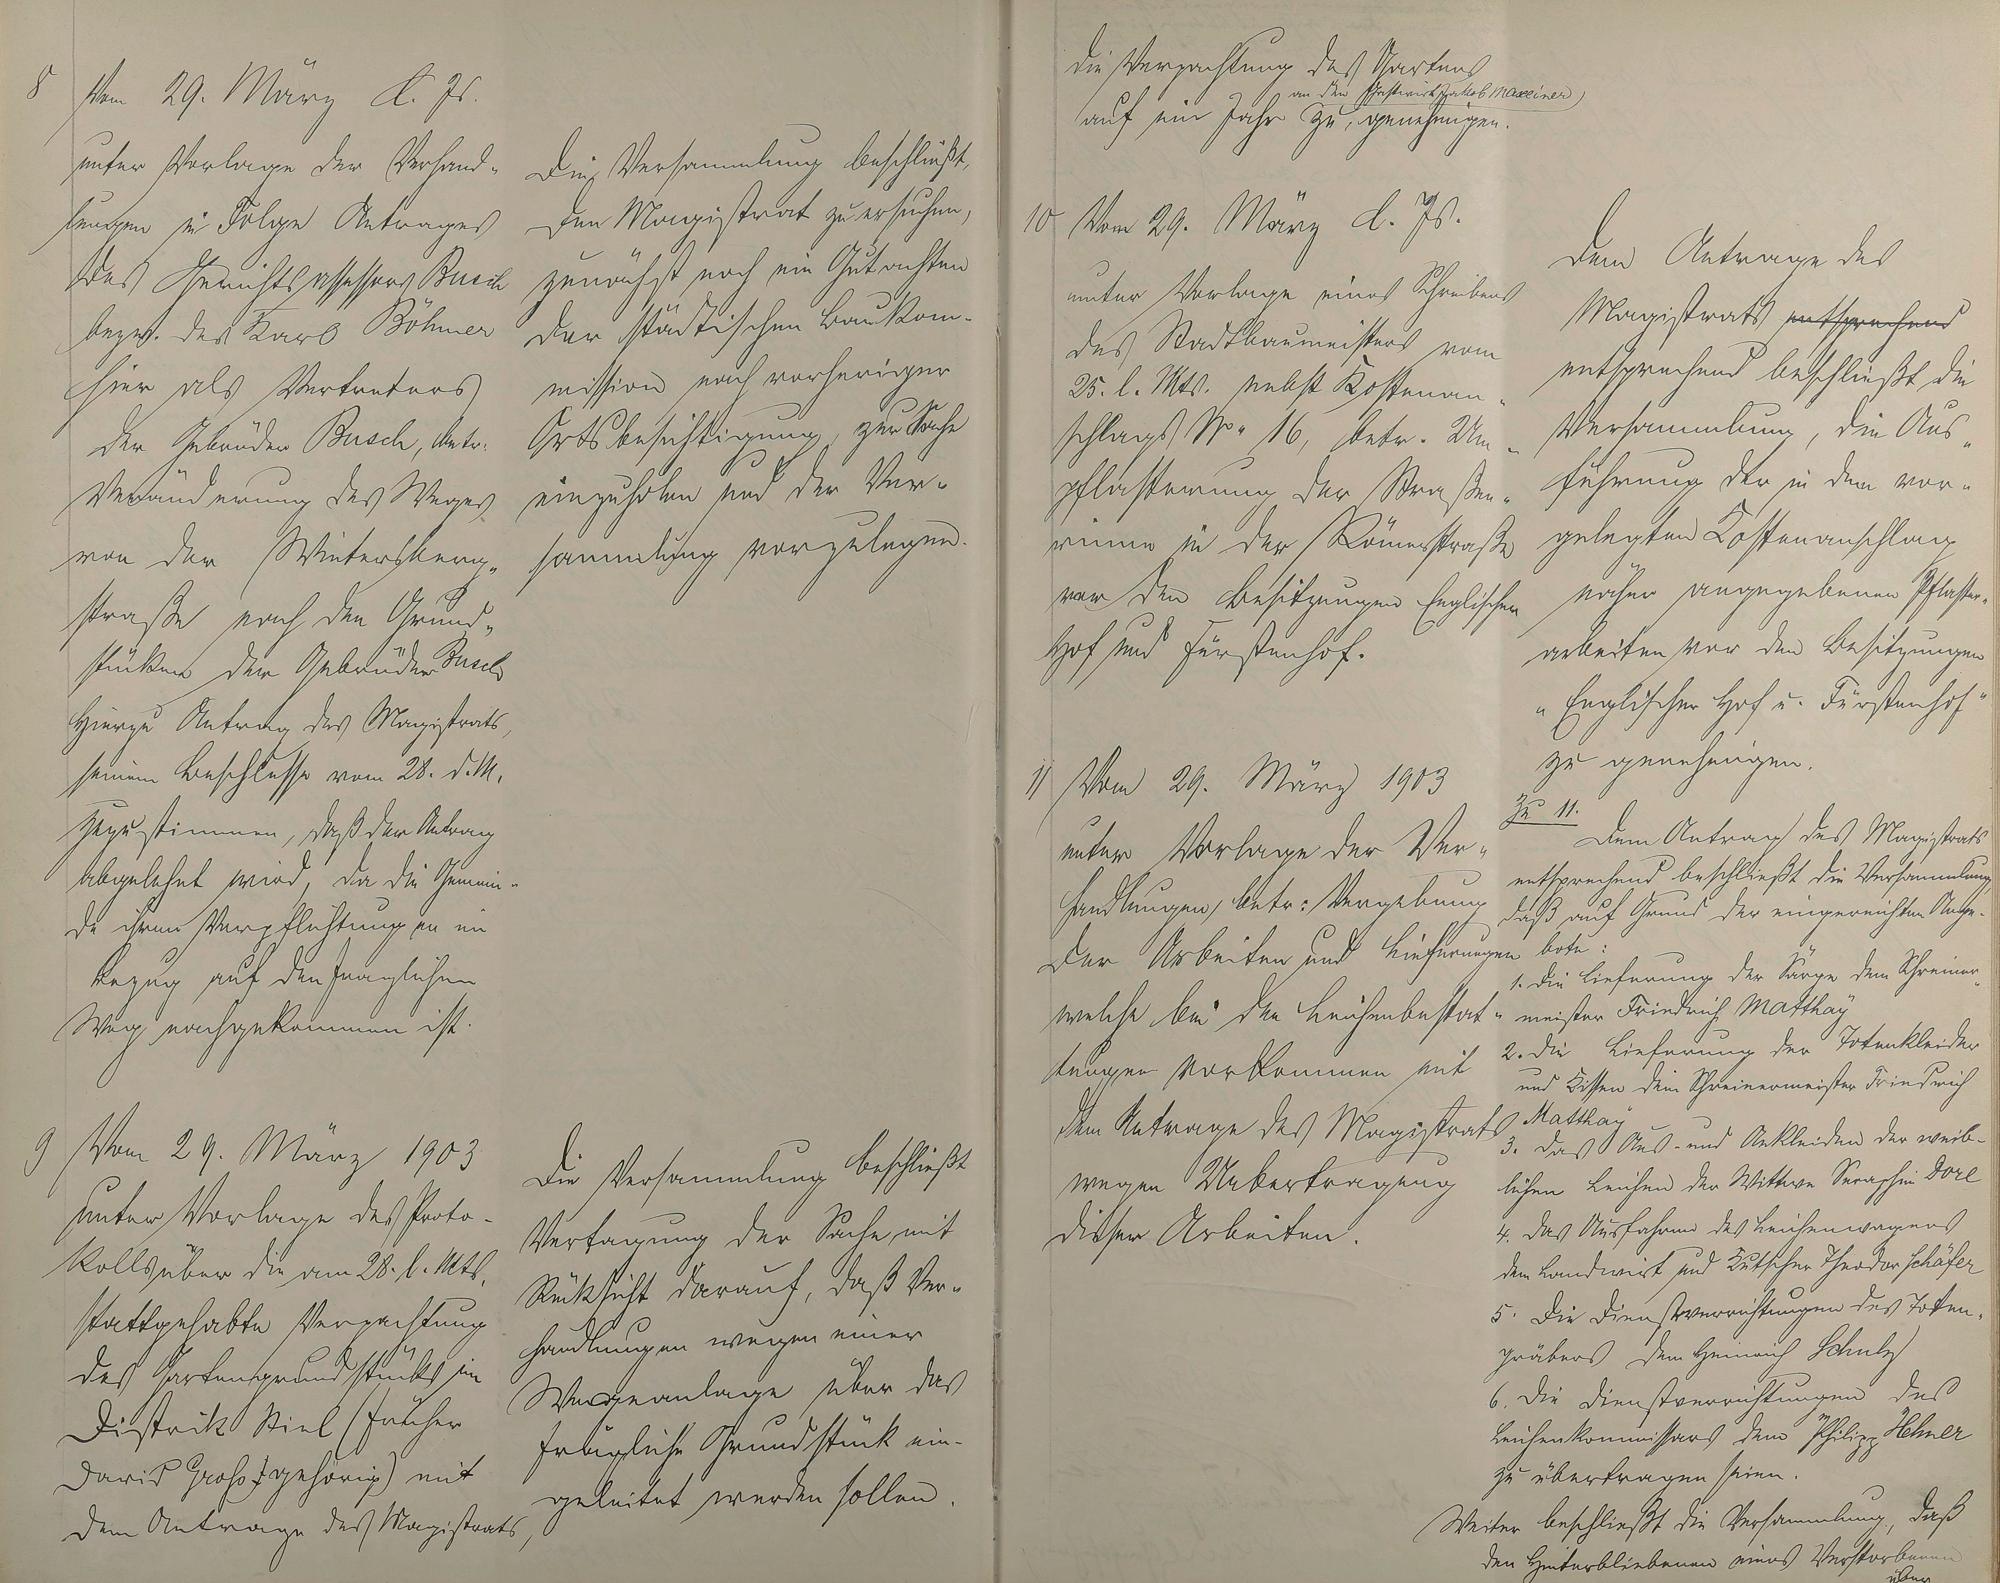 8 Vom 29. März d. Js.
unter Vorlage der Verhand-
lungen in Folge Antrages
des Gerichtsassessors Busch
bezw. des Karl Böhmer
hier als Vertreters
der Gebrüder Busch, betr.
Veränderung des Weges
von der Wintersberg-
straße nach den Grund-
stücken der Gebrüder Busch
Hierzu Antrag des Magistrats,
seinem Beschlusse vom 28. d. M.
zuzustimmen, daß der Antrag
abgelehnt wird, da die Gemein-
de ihren Verpflichtungen in
Bezug auf den fraglichen
Weg nachgekommen ist.
Die Versammlung beschließt,
den Magistrat zu ersuchen,
zunächst noch ein Gutachten
der städtischen Baukom-
mission nach vorheriger
Ortsbesichtigung zur Sache
einzuholen und der Ver-
sammlung vorzulegen.
9 Vom 29. März 1903
unter Vorlage des Proto-
kolls über die am 28. l. Mts.
stattgehabte Verpachtung
des Gartengrundstücks im
Distrikt Kiel (früher
David gehörig) mit
dem Antrage des Magistrats,
Die Versammlung beschließt
Vertagung der Sache mit
Rücksicht darauf, daß Ver-
handlungen wegen einer
Wegeanlage über das
fragliche Grundstück ein-
geleitet werden sollen.
die Verpachtung des Gartens
an den Gastwirt Jakob Maxeiner)
auf ein Jahr zu, genehmigen.
10 Vom 29. März d. Js.
unter Vorlage eines Schreibens
des Stadtbaumeisters vom
25. l. Mts. nebst Kostenan-
schlags No. 16, betr. Um-
pflasterung der Straßen-
rinne in der Römerstraße
vor den Besitzungen Englischer
Hof und Fürstenhof.
Dem Antrage des
Magistrats entsprechend
entsprechend beschließt die
Versammlung, die Aus-
führung der in dem vor-
gelegten Kostenanschlag
näher angegebenen Pflaster-
arbeiten vor den Besitzungen
"Englischer Hof u. Fürstenhof"
zu genehmigen.
11 Vom 29. März 1903
unter Vorlage der Ver-
handlungen, betr: Vergebung
der Arbeiten und Lieferungen
welche bei den Leichenbestat-
tungen vorkommen mit
dem Antrage des Magistrats
wegen Uebertragung
dieser Arbeiten.
Zu 11.
Dem Antrag des Magistrats
entsprechend beschließt die Versammlung,
daß auf Grund der eingereichten Ange-
bote:
1. Die Lieferung der Särge dem Schreiner-
meister Friedrich Matthay
2. Die Lieferung der Totenkleider
und Kissen dem Schreinermeister Friedrich
Matthay
3. Das Aus- und Ankleiden der weib-
lichen Leichen der Wittwe Seraphin Dorl
4. Das Ausfahren des Leichenwagens
dem Landwirt und Kutscher Theodor Schäfer
5. Die Dienstverrichtungen des Toten-
gräbers dem Heinrich Schulz
6. Die Dienstverrichtungen des
Leichenkommissars dem Philipp Hehner
zu übertragen seien.
Weiter beschließt die Versammlung, daß
den Hinterbliebenen eines Verstorbenen
über